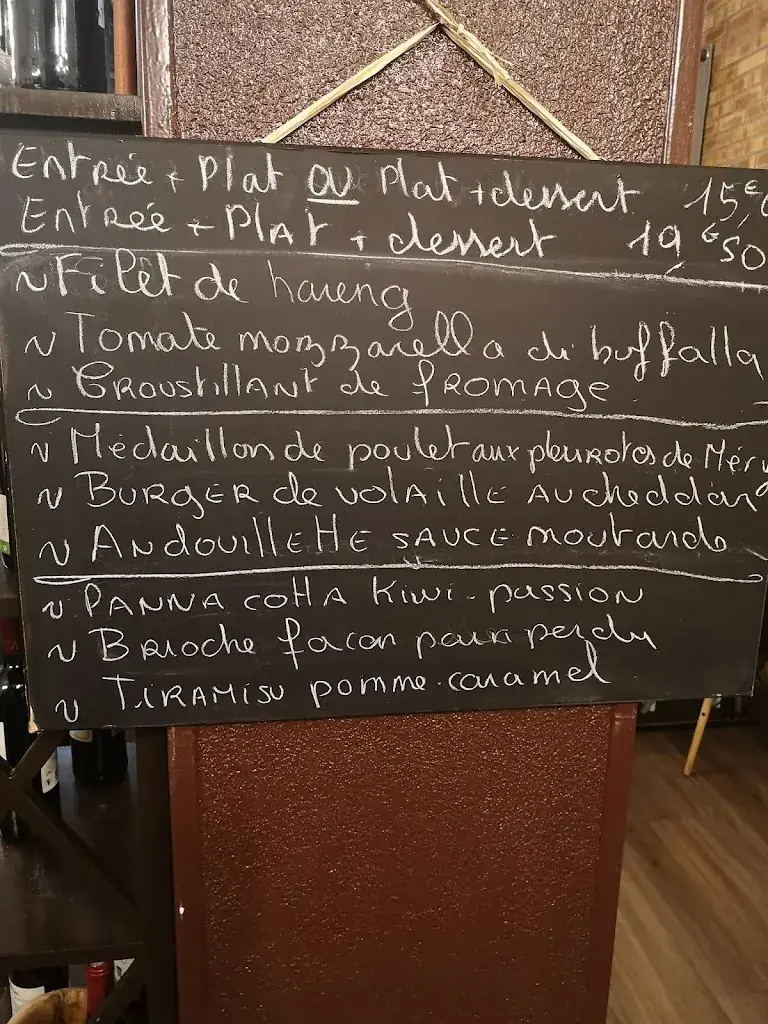 Entrée + Plat ou Plat + dessert 15,€
Entrée + Plat + dessert 19,€50
~ Filet de hareng
~ Tomate mozzarella di buffalla
~ Croustillant de fromage
~ Médaillon de poulet aux pleurotes de Méry
~ Burger de volaille au cheddar
~ Andouillette sauce moutarde
~ Panna cotta Kiwi - passion
~ Brioche façon pain perdu
~ Tiramisu pomme-caramel